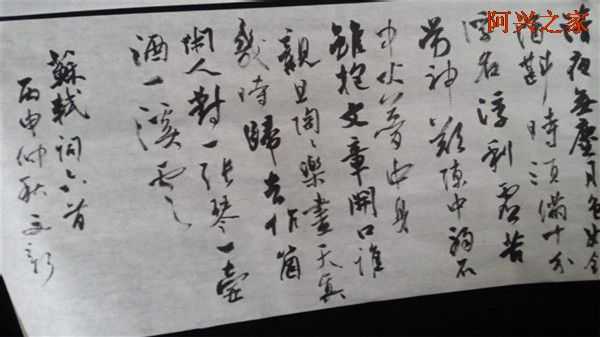 阿兴之家
清夜無塵月色如
酒斟時須滿十分
浮名浮利虛苦
勞神歎隙中駒石
中火夢中身
雖抱文章開口誰
親且陶々樂盡天真
幾時歸去作箇
閑人對一張琴一壺
酒一溪雲
蘇軾詞六首
丙申仲秋文彰